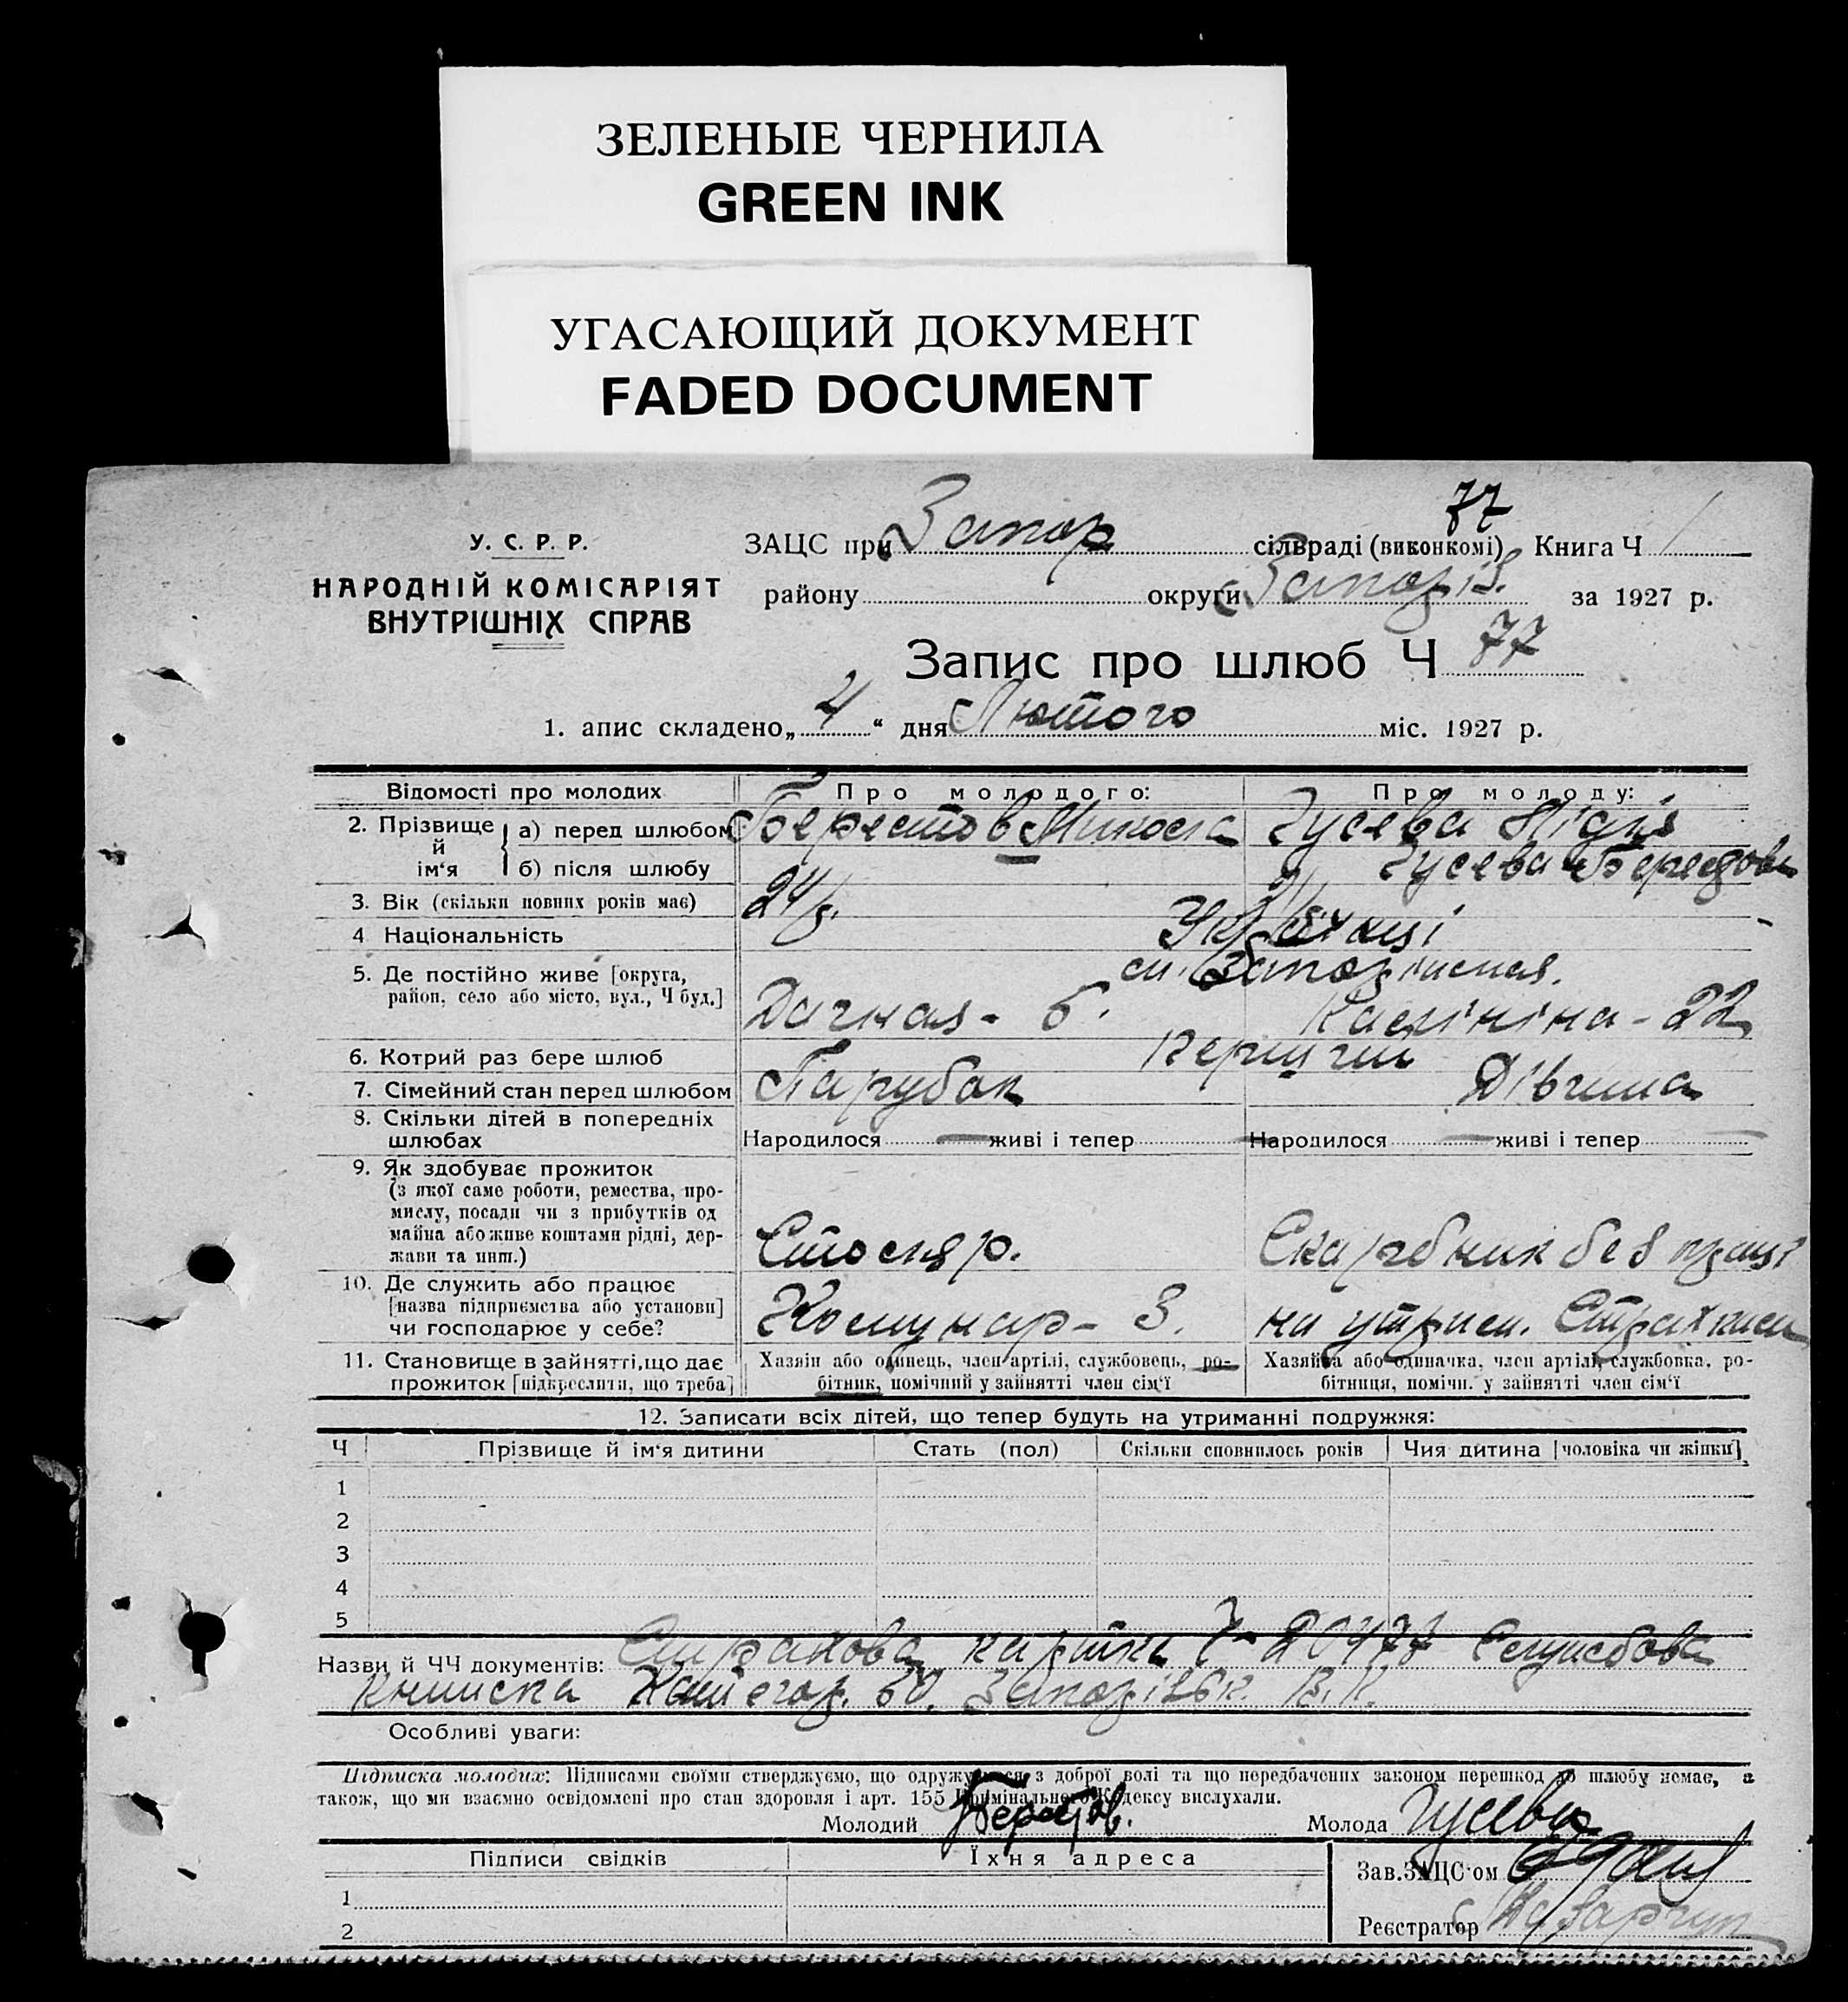 ЗЕЛЕНЫЕ ЧЕРНИЛА
GREEN INK
УГАСАЮЩИЙ ДОКУМЕНТ
FADED DOCUMENT
77
У. С. Р. Р.
НАРОДНІЙ КОМІСАРІЯТ
ВНУТРІШНІХ СПРАВ
ЗАЦС при Запор сільраді (виконкомі) Книга Ч 1
району округи Запоріз. за 1927 р.
Запис про шлюб Ч 77
1. апис складено „4“ дня Лютого міс. 1927 р.
Відомості про молодих Про молодого: Про молоду:
2. Прізвище й ім‘я а) перед шлюбом Берестов Микола Гусева Лідія
б) після шлюбу Гусева-Берестова
3. Вік (скільки повних років має) 24
4 Національність
5. Де постійно живе [округа,
район, село або місто, вул., Ч буд.]
Дачная - 6. Калініна - 22
6. Котрий раз бере шлюб Перший
7. Сімейний стан перед шлюбом Парубок Дівчина
8. Скільки дітей в попередніх
шлюбах Народилося — живі і тепер — Народилося — живі і тепер —
9. Як здобуває прожиток
(з якої саме роботи, ремества, про-
мислу, посади чи з прибутків од
майна або живе коштами рідні, дер-
жави та инш.)
Столяр. без праці
10. Де служить або працює
[назва підприємства або установи]
чи господарює у себе?
Комунар - 3. на утрим. Страхкаси
11. Становище в зайнятті, що дає
прожиток [підкреслити, що треба]
Хазяін або одинець, член артілі, службовець, ро-
бітник, помічний у зайнятті член сім‘ї
Хазяйка або одиначка, член артілі, службовка, ро-
бітниця, помічн. у зайнятті член сім‘ї
12. Записати всіх дітей, що тепер будуть на утриманні подружжя:
Ч Прізвище й ім‘я дитини Стать (пол) Скільки сповнилось років Чия дитина [чоловіка чи жінки]
1
2
3
4
5
Назви й ЧЧ документів: Страхова картка Ч- 20477 Службова
книжка
Особливі уваги:
Підписка молодих: Підписами своїми стверджуємо, що одружуємося з доброї волі та що передбачених законом перешкод до шлюбу немає, а
також, що ми взаємно освідомлені про стан здоровля і арт. 155 Кримінального Кодексу вислухали.
Молодий Берестов. Молода Гусева
Підписи свідків Їхня адреса
1
2
Зав. ЗАЦС‘ом
Реєстратор